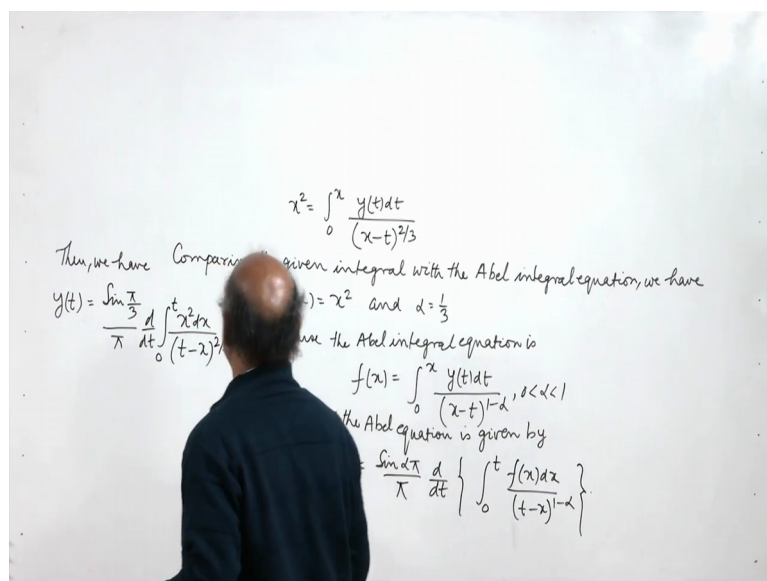 x² = ∫₀ˣ y(t)dt / (x-t)^2/3
Then, we have
Comparing given integral with the Abel integral equation, we have
) = x² and α = 1/3
y(t) = Sin π/3 / π d/dt ∫₀ᵗ x²dx / (t-x)²
the Abel integral equation is
f(x) = ∫₀ˣ y(t)dt / (x-t)^1-α , 0<α<1
the Abel equation is given by
= Sin απ / π d/dt { ∫₀ᵗ f(x)dx / (t-x)^1-α }.